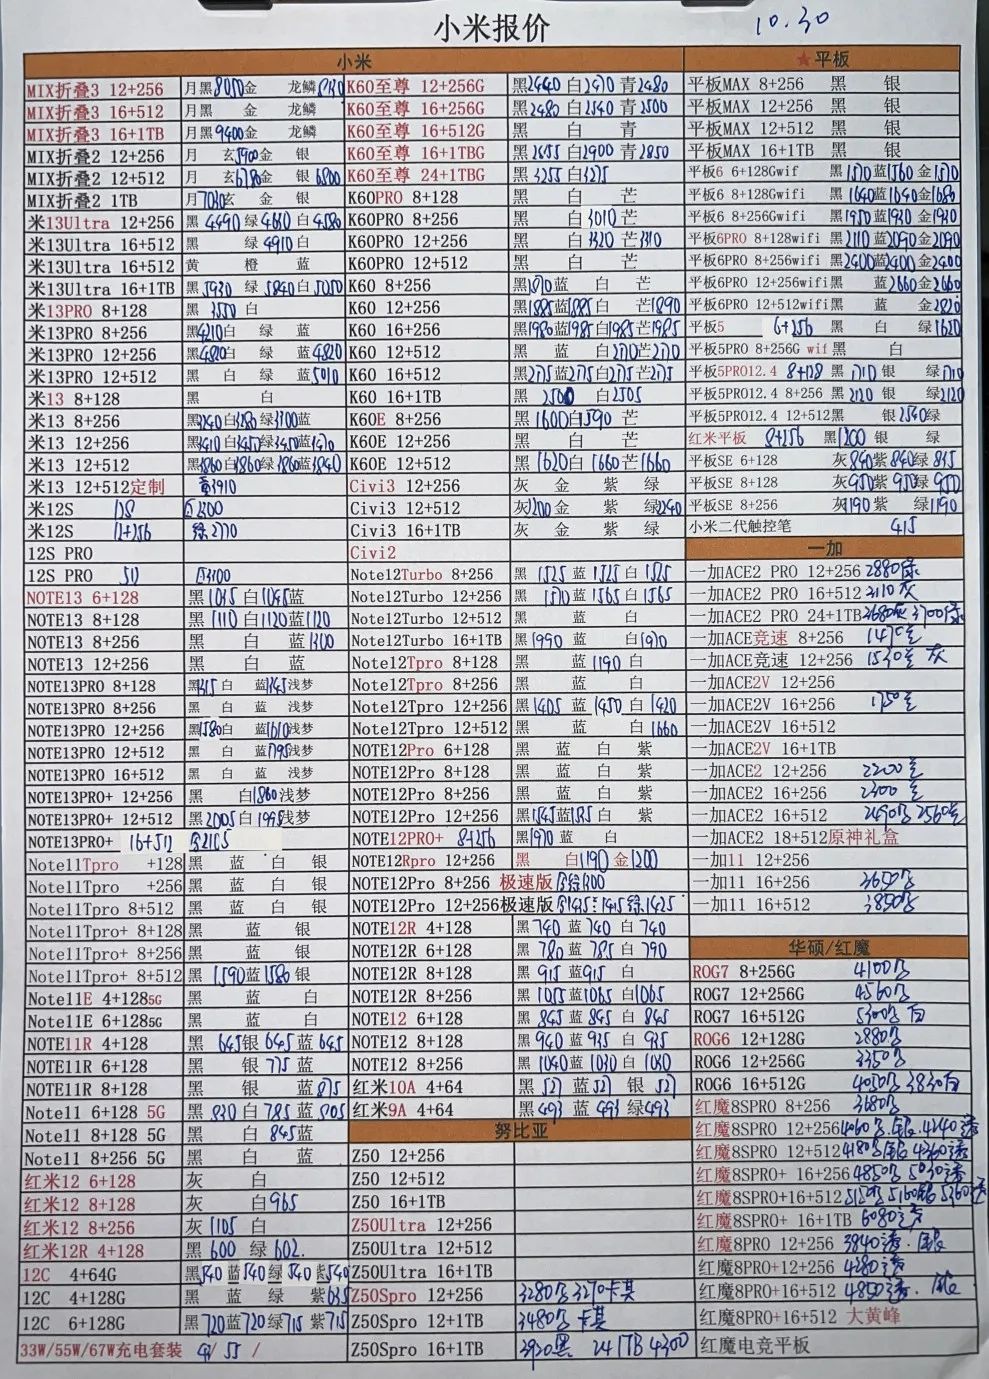 小米报价
10.30
小米
MIX折叠3 12+256 月黑8050金 龙鳞
MIX折叠3 16+512 月黑 金 龙鳞
MIX折叠3 16+1TB 月黑9400金 龙鳞
MIX折叠2 12+256 月 玄5900金 银
MIX折叠2 12+512 月 玄6780金 银6800
MIX折叠2 1TB 月7080玄 金 银
米13Ultra 12+256 黑4490 绿4610 白4580
米13Ultra 16+512 黑 绿4910白
米13Ultra 16+512 黄 橙 蓝
米13Ultra 16+1TB 黑5430 绿5840白5050
米13PRO 8+128 黑3550白
米13PRO 8+256 黑4210白 绿 蓝
米13PRO 12+256 黑4820白 绿 蓝4820
米13PRO 12+512 黑 白 绿 蓝5010
米13 8+128 黑 白
米13 8+256 黑3240白3280绿3300蓝
米13 12+256
米13 12+512 黑3860白3860绿3860蓝3840
米13 12+512定制 3910
米12S 128
米12S 12+256 绿2770
12S PRO
12S PRO 512
NOTE13 6+128 黑1045白1045蓝
NOTE13 8+128 黑1110白1120蓝1120
NOTE13 8+256 黑 白 蓝1300
NOTE13 12+256 黑 白 蓝
NOTE13PRO 8+128 黑 白 蓝 浅梦
NOTE13PRO 8+256 黑 白 蓝 浅梦
NOTE13PRO 12+256 黑1580白 蓝1610浅梦
NOTE13PRO 12+512 黑 白 蓝1795浅梦
NOTE13PRO 16+512 黑 白 蓝 浅梦
NOTE13PRO+ 12+256 黑 白1860浅梦
NOTE13PRO+ 12+512 黑2005白1995浅梦
NOTE13PRO+ 16+512 白2105
Note11Tpro +128 黑 蓝 白 银
Note11Tpro +256 黑 蓝 白 银
Note11Tpro 8+512 黑 蓝 白 银
Note11Tpro+ 8+128 黑 蓝 银
Note11Tpro+ 8+256 黑 蓝 银
Note11Tpro+ 8+512 黑1590蓝1580银
Note11E 4+1285G 黑 蓝 白
Note11E 6+1285G 黑 蓝 白
NOTE11R 4+128 黑645银645蓝645
NOTE11R 6+128 黑 银775蓝
NOTE11R 8+128 黑 银 蓝875
Note11 6+128 5G 黑830白785蓝805
Note11 8+128 5G 黑 白845蓝
Note11 8+256 5G 黑 白 蓝
红米12 6+128 灰 白
红米12 8+128 灰 白965
红米12 8+256 灰1105白
红米12R 4+128 黑600 绿602.
12C 4+64G 黑540蓝540绿540紫540
12C 4+128G 黑 蓝 绿 紫635
12C 6+128G 黑720蓝720绿715紫715
33W/55W/67W充电套装 41/ 55 /
K60至尊 12+256G 黑2440白2470青2480
K60至尊 16+256G 黑2480白2540青2500
K60至尊 16+512G 黑 白 青
K60至尊 16+1TBG 黑2855白2900青2850
K60至尊 24+1TBG 黑3255白3275
K60PRO 8+128 黑 白 芒
K60PRO 8+256 黑 白3010芒
K60PRO 12+256 黑 白3320芒3310
K60PRO 12+512 黑 白 芒
K60 8+256 黑 蓝 白 芒
K60 12+256 黑1885蓝1885白 芒1890
K60 16+256 黑1980蓝1985白1985芒1985
K60 12+512 黑 蓝 白2170芒2170
K60 16+512 黑2175蓝2175白2175芒2175
K60 16+1TB 黑2500 白2505
K60E 8+256 黑1600白1590芒
K60E 12+256 黑 白 芒
K60E 12+512 黑1620白1660芒1660
Civi3 12+256 灰 金 紫 绿
Civi3 12+512 灰2200金 紫 绿2240
Civi3 16+1TB 灰 金 紫 绿
Civi2
Note12Turbo 8+256 黑1525蓝1525白1525
Note12Turbo 12+256 黑1570蓝1565白1565
Note12Turbo 12+512 黑 蓝 白
Note12Turbo 16+1TB 黑1990蓝 白1970
Note12Tpro 8+128 黑 蓝1190白
Note12Tpro 8+256 黑 蓝 白
Note12Tpro 12+256 黑1405蓝1450白1420
Note12Tpro 12+512 黑 蓝 白1660
NOTE12Pro 6+128 黑 蓝 白 紫
NOTE12Pro 8+128 黑 蓝 白 紫
NOTE12Pro 8+256 黑 蓝 白 紫
NOTE12Pro 12+256 黑 蓝 白 紫
NOTE12PRO+ 8+256 黑1970蓝 白
NOTE12Rpro 12+256 黑 白1190金1200
NOTE12Pro 8+256 极速版
NOTE12Pro 12+256极速版
NOTE12R 4+128 黑740蓝740白740
NOTE12R 6+128 黑780蓝785白790
NOTE12R 8+128 黑915蓝915白
NOTE12R 8+256 黑1055蓝1065白1065
NOTE12 6+128 黑845蓝845白845
NOTE12 8+128 黑940蓝935白935
NOTE12 8+256 黑1040蓝1030白1030
红米10A 4+64 黑527蓝527银527
红米9A 4+64 黑493蓝493绿493
努比亚
Z50 12+256
Z50 12+512
Z50 16+1TB
Z50Ultra 12+256
Z50Ultra 12+512
Z50Ultra 16+1TB
Z50Spro 12+256 3280 3270卡其
Z50Spro 12+1TB 3480 卡其
Z50Spro 16+1TB 3920黑 24 1TB 4300
★平板
平板MAX 8+256 黑 银
平板MAX 12+256 黑 银
平板MAX 12+512 黑 银
平板MAX 16+1TB 黑 银
平板6 6+128Gwif 黑1570蓝1560金1570
平板6 8+128Gwifi 黑1640蓝1640金1680
平板6 8+256Gwifi 黑1950蓝1930金1930
平板6PRO 8+128wifi 黑2110蓝2090金2090
平板6PRO 8+256wifi 黑2400蓝2400金2400
平板6PRO 12+256wifi 黑 蓝2660金2660
平板6PRO 12+512wifi 黑 蓝 金2820
平板5 6+256 黑 白 绿1620
平板5PRO 8+256G wif 黑 白
平板5PRO12.4 8+128 黑1710银 绿1710
平板5PRO12.4 8+256 黑2120银 绿2120
平板5PRO12.4 12+512 黑 银2540绿
红米平板 8+256 黑1200银 绿
平板SE 6+128 灰840紫840绿845
平板SE 8+128 灰950紫950绿950
平板SE 8+256 灰1190紫 绿1190
小米二代触控笔 415
一加
一加ACE2 PRO 12+256 2880绿
一加ACE2 PRO 16+512 3110灰
一加ACE2 PRO 24+1TB 3680灰 3700绿
一加ACE竞速 8+256
一加ACE竞速 12+256 1530 灰
一加ACE2V 12+256
一加ACE2V 16+256
一加ACE2V 16+512
一加ACE2V 16+1TB
一加ACE2 12+256 2200
一加ACE2 16+256 2300
一加ACE2 16+512 2490 2560
一加ACE2 18+512原神礼盒
一加11 12+256
一加11 16+256 3650
一加11 16+512 3850
华硕/红魔
ROG7 8+256G 4100
ROG7 12+256G 4560
ROG7 16+512G 5300 白
ROG6 12+128G 2880
ROG6 12+256G 3350
ROG6 16+512G 4050 3830白
红魔8SPRO 8+256 3680
红魔8SPRO 12+256 4060 银 4240透
红魔8SPRO 12+512 4180 银 4360透
红魔8SPRO+ 16+256 4850 5030透
红魔8SPRO+16+512 5150 5160银 5360透
红魔8SPRO+ 16+1TB 6080透
红魔8PRO 12+256 3840透. 银
红魔8PRO+ 12+256 4280透
红魔8PRO+16+512 4850透.
红魔8PRO+16+512 大黄蜂
红魔电竞平板